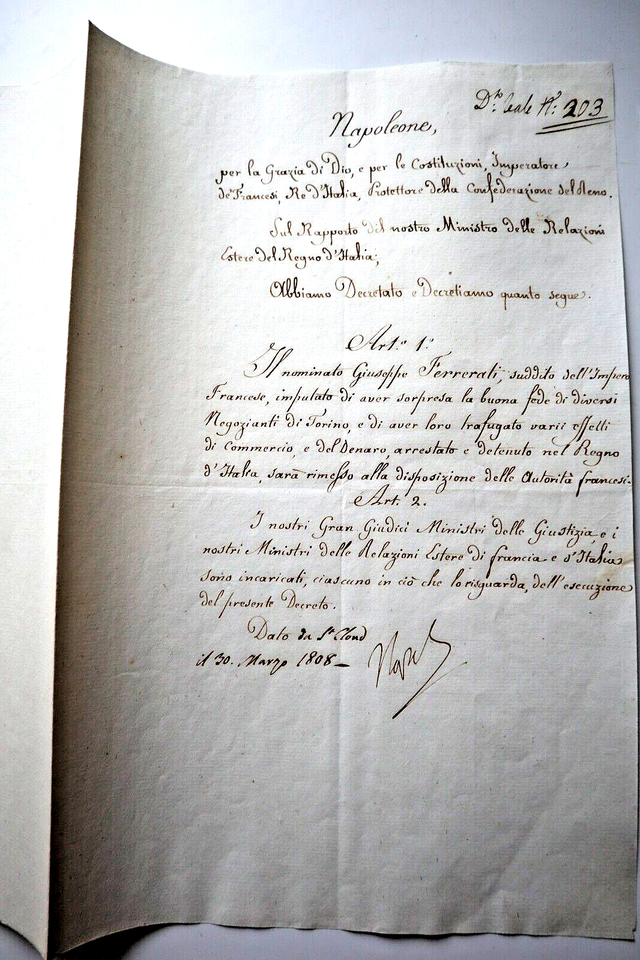 D.to Reale N.o 203
Napoleone,
per la Grazia di Dio, e per le Costituzioni, Imperatore
de' Francesi, Re d'Italia, Protettore della Confederazione del Reno.
Sul Rapporto del nostro Ministro delle Relazioni
Estere del Regno d'Italia;
Abbiamo Decretato e Decretiamo quanto segue.
Art.o 1.o
Il nominato Giuseppe Ferrerati, suddito dell'Impero
Francese, imputato di aver sorpresa la buona fede di diversi
Negozianti di Torino, e di aver loro trafugato varii effetti
di Commercio, e del Denaro, arrestato e detenuto nel Regno
d'Italia, sarà rimesso alla disposizione delle Autorità francesi.
Art.o 2.
I nostri Gran Giudici Ministri delle Giustizia e i
nostri Ministri delle Relazioni Estere di francia e d'Italia
sono incaricati, ciascuno in ciò che lo risguarda, dell'esecuzione
del presente Decreto.
Dato da St Cloud
il 30. Marzo 1808 –
Nap